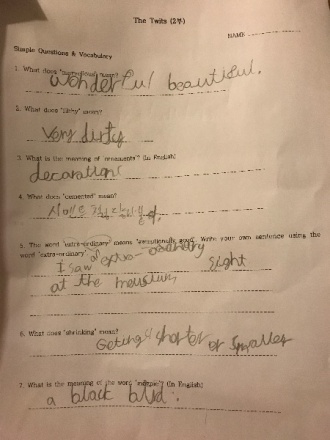 The Twits (2부)
NAME
Simple Questions & Vocabulary
1. What does mean?
wonderful beautiful.
2. What does 'filthy' mean?
Very dirty
3. What is the meaning of 'ornaments'? (In English)
decorations
4. What does 'cemented' mean?
5. The word 'extra-ordinary' means 'exceptionally good'. Write your own sentence using the
word 'extra-ordinary'
I saw extra- ordinary sight
at the meusium
6. What does 'shrinking' mean?
Getting shorter or smaller
7. What is the meaning of the word (In English)
a black bird.